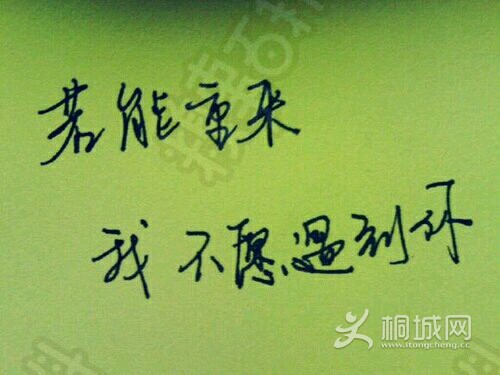 若能重来
我不愿遇到你
桐城网
www.itongcheng.cc